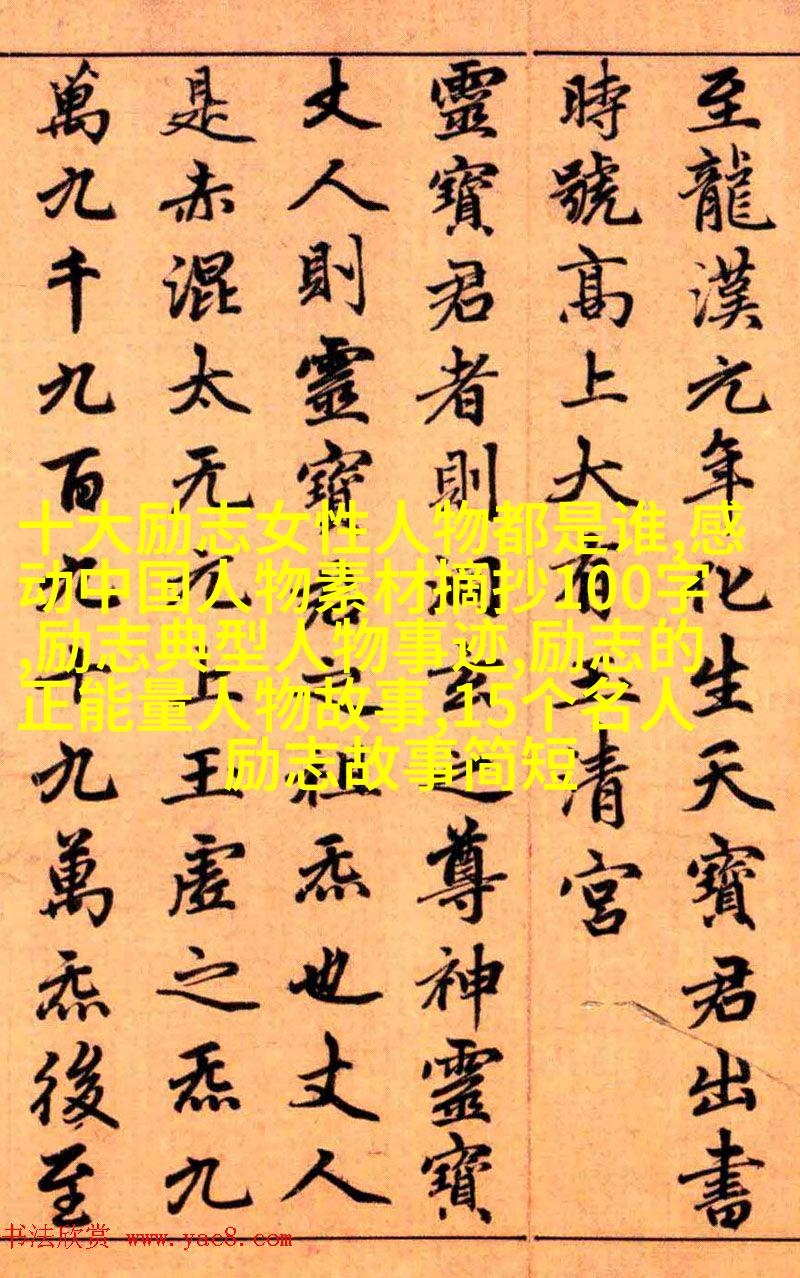 至龍漢元年化生天寶君出書
時號高上大有玉清宮
靈寶君者則洞玄之尊神靈寶
丈人則靈寶君之祖炁也丈人
是赤混太无元上王虛之炁九
萬九千九百九十九萬炁後至
十大励志女性人物都是谁,感
动中国人物素材摘抄100字
,励志典型人物事迹,励志的
正能量人物故事,15个名人
励志故事简短
书法欣赏 www.yac8.com